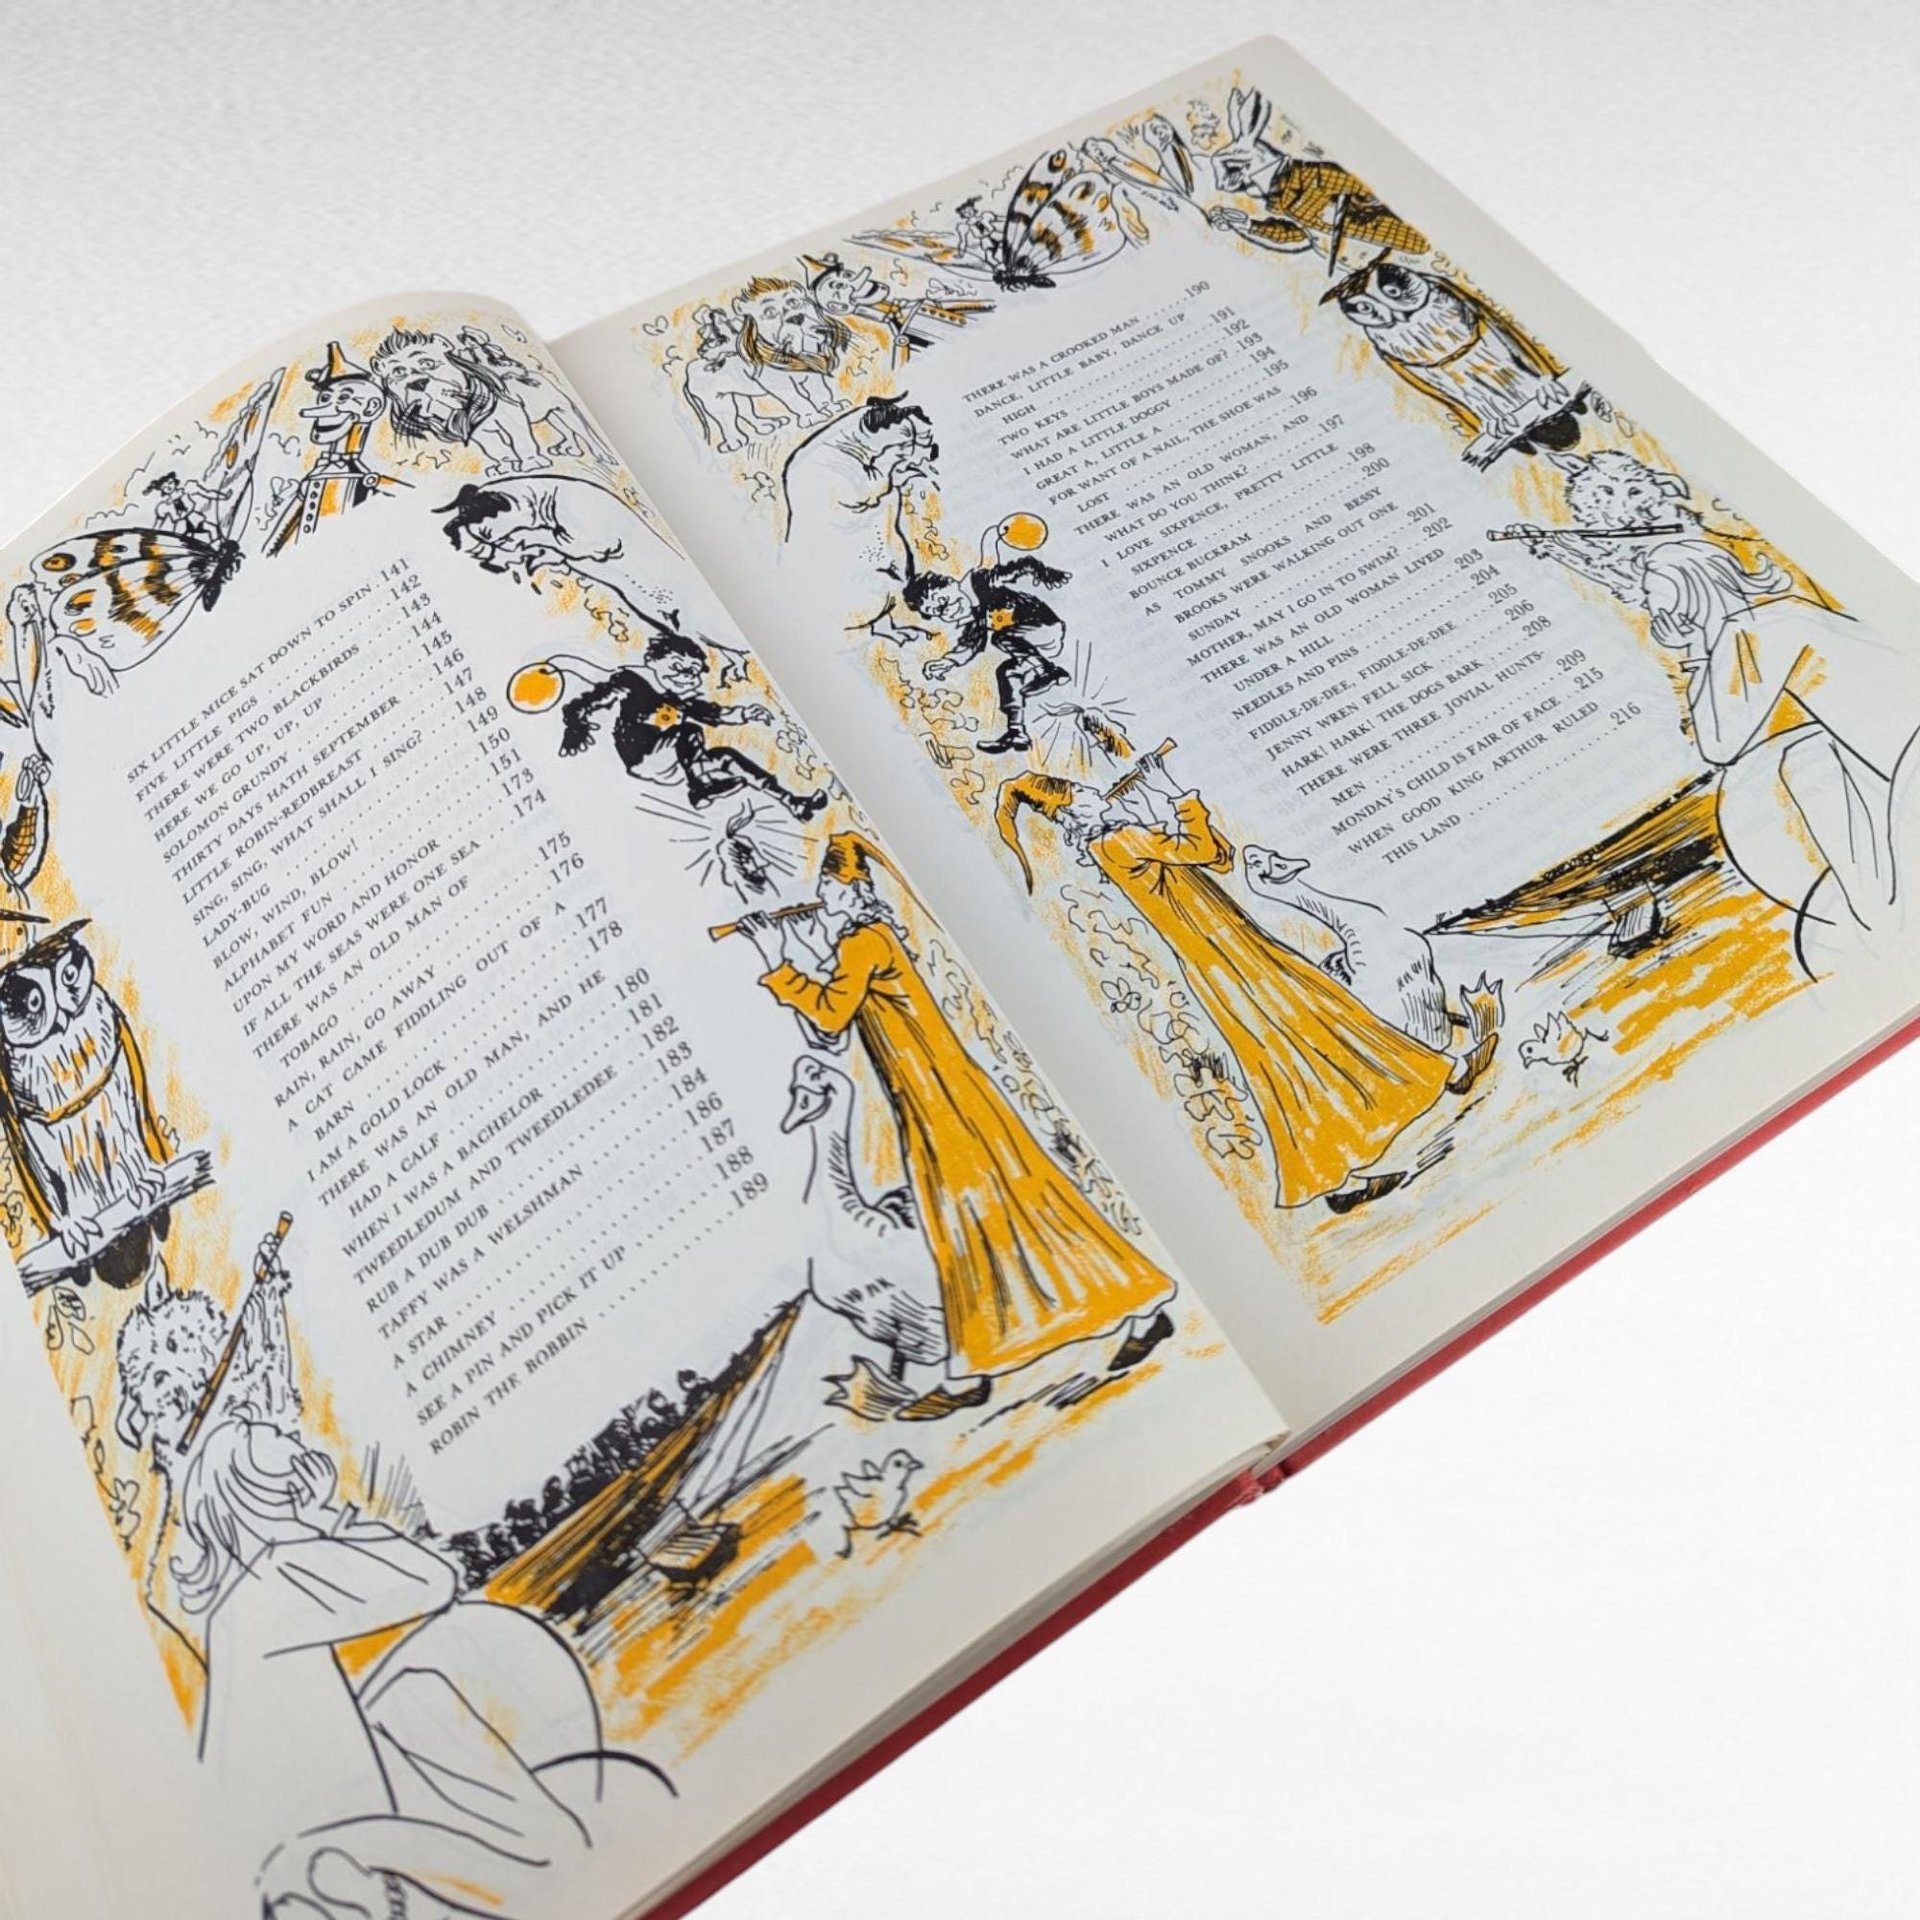 SIX LITTLE MICE SAT DOWN TO SPIN . 141
FIVE LITTLE PIGS .......... 142
THERE WERE TWO BLACKBIRDS .... 143
HERE WE GO UP, UP, UP ........ 144
SOLOMON GRUNDY .......... 145
THIRTY DAYS HATH SEPTEMBER .... 146
LITTLE ROBIN-REDBREAST ........ 147
SING, SING, WHAT SHALL I SING? .... 148
LADY-BUG .......... 149
BLOW, WIND, BLOW! .......... 150
ALPHABET FUN .......... 151
UPON MY WORD AND HONOR ...... 173
IF ALL THE SEAS WERE ONE SEA .... 174
THERE WAS AN OLD MAN OF
TOBAGO .......... 175
RAIN, RAIN, GO AWAY .......... 176
A CAT CAME FIDDLING OUT OF A
BARN .......... 177
I AM A GOLD LOCK .......... 178
THERE WAS AN OLD MAN, AND HE
HAD A CALF .......... 180
WHEN I WAS A BACHELOR ........ 181
TWEEDLEDUM AND TWEEDLEDEE .... 182
RUB A DUB DUB .......... 183
TAFFY WAS A WELSHMAN ........ 184
A STAR .......... 186
A CHIMNEY .......... 187
SEE A PIN AND PICK IT UP ........ 188
ROBIN THE BOBBIN .......... 189
THERE WAS A CROOKED MAN ...... 190
DANCE, LITTLE BABY, DANCE UP
HIGH .......... 191
TWO KEYS .......... 192
WHAT ARE LITTLE BOYS MADE OF? . 193
I HAD A LITTLE DOGGY .......... 194
GREAT A, LITTLE A .......... 195
FOR WANT OF A NAIL, THE SHOE WAS
LOST .......... 196
THERE WAS AN OLD WOMAN, AND
WHAT DO YOU THINK? .......... 197
I LOVE SIXPENCE, PRETTY LITTLE
SIXPENCE .......... 198
BOUNCE BUCKRAM .......... 200
AS TOMMY SNOOKS AND BESSY
BROOKS WERE WALKING OUT ONE
SUNDAY .......... 201
MOTHER, MAY I GO IN TO SWIM? .. 202
THERE WAS AN OLD WOMAN LIVED
UNDER A HILL .......... 203
NEEDLES AND PINS .......... 204
FIDDLE-DE-DEE, FIDDLE-DE-DEE .... 205
JENNY WREN FELL SICK .......... 206
HARK! HARK! THE DOGS BARK .... 208
THERE WERE THREE JOVIAL HUNTS-
MEN .......... 209
MONDAY'S CHILD IS FAIR OF FACE .. 215
WHEN GOOD KING ARTHUR RULED
THIS LAND .......... 216